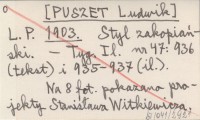 [PUSZET Ludwik]
L. P. 1903. Styl zakopiań-
ski. — Tyg. Il. nr 47: 936
(tekst) i 935-937 (il.).
Na 8 fot. pokazano pro-
jekty Stanisława Witkiewicza.